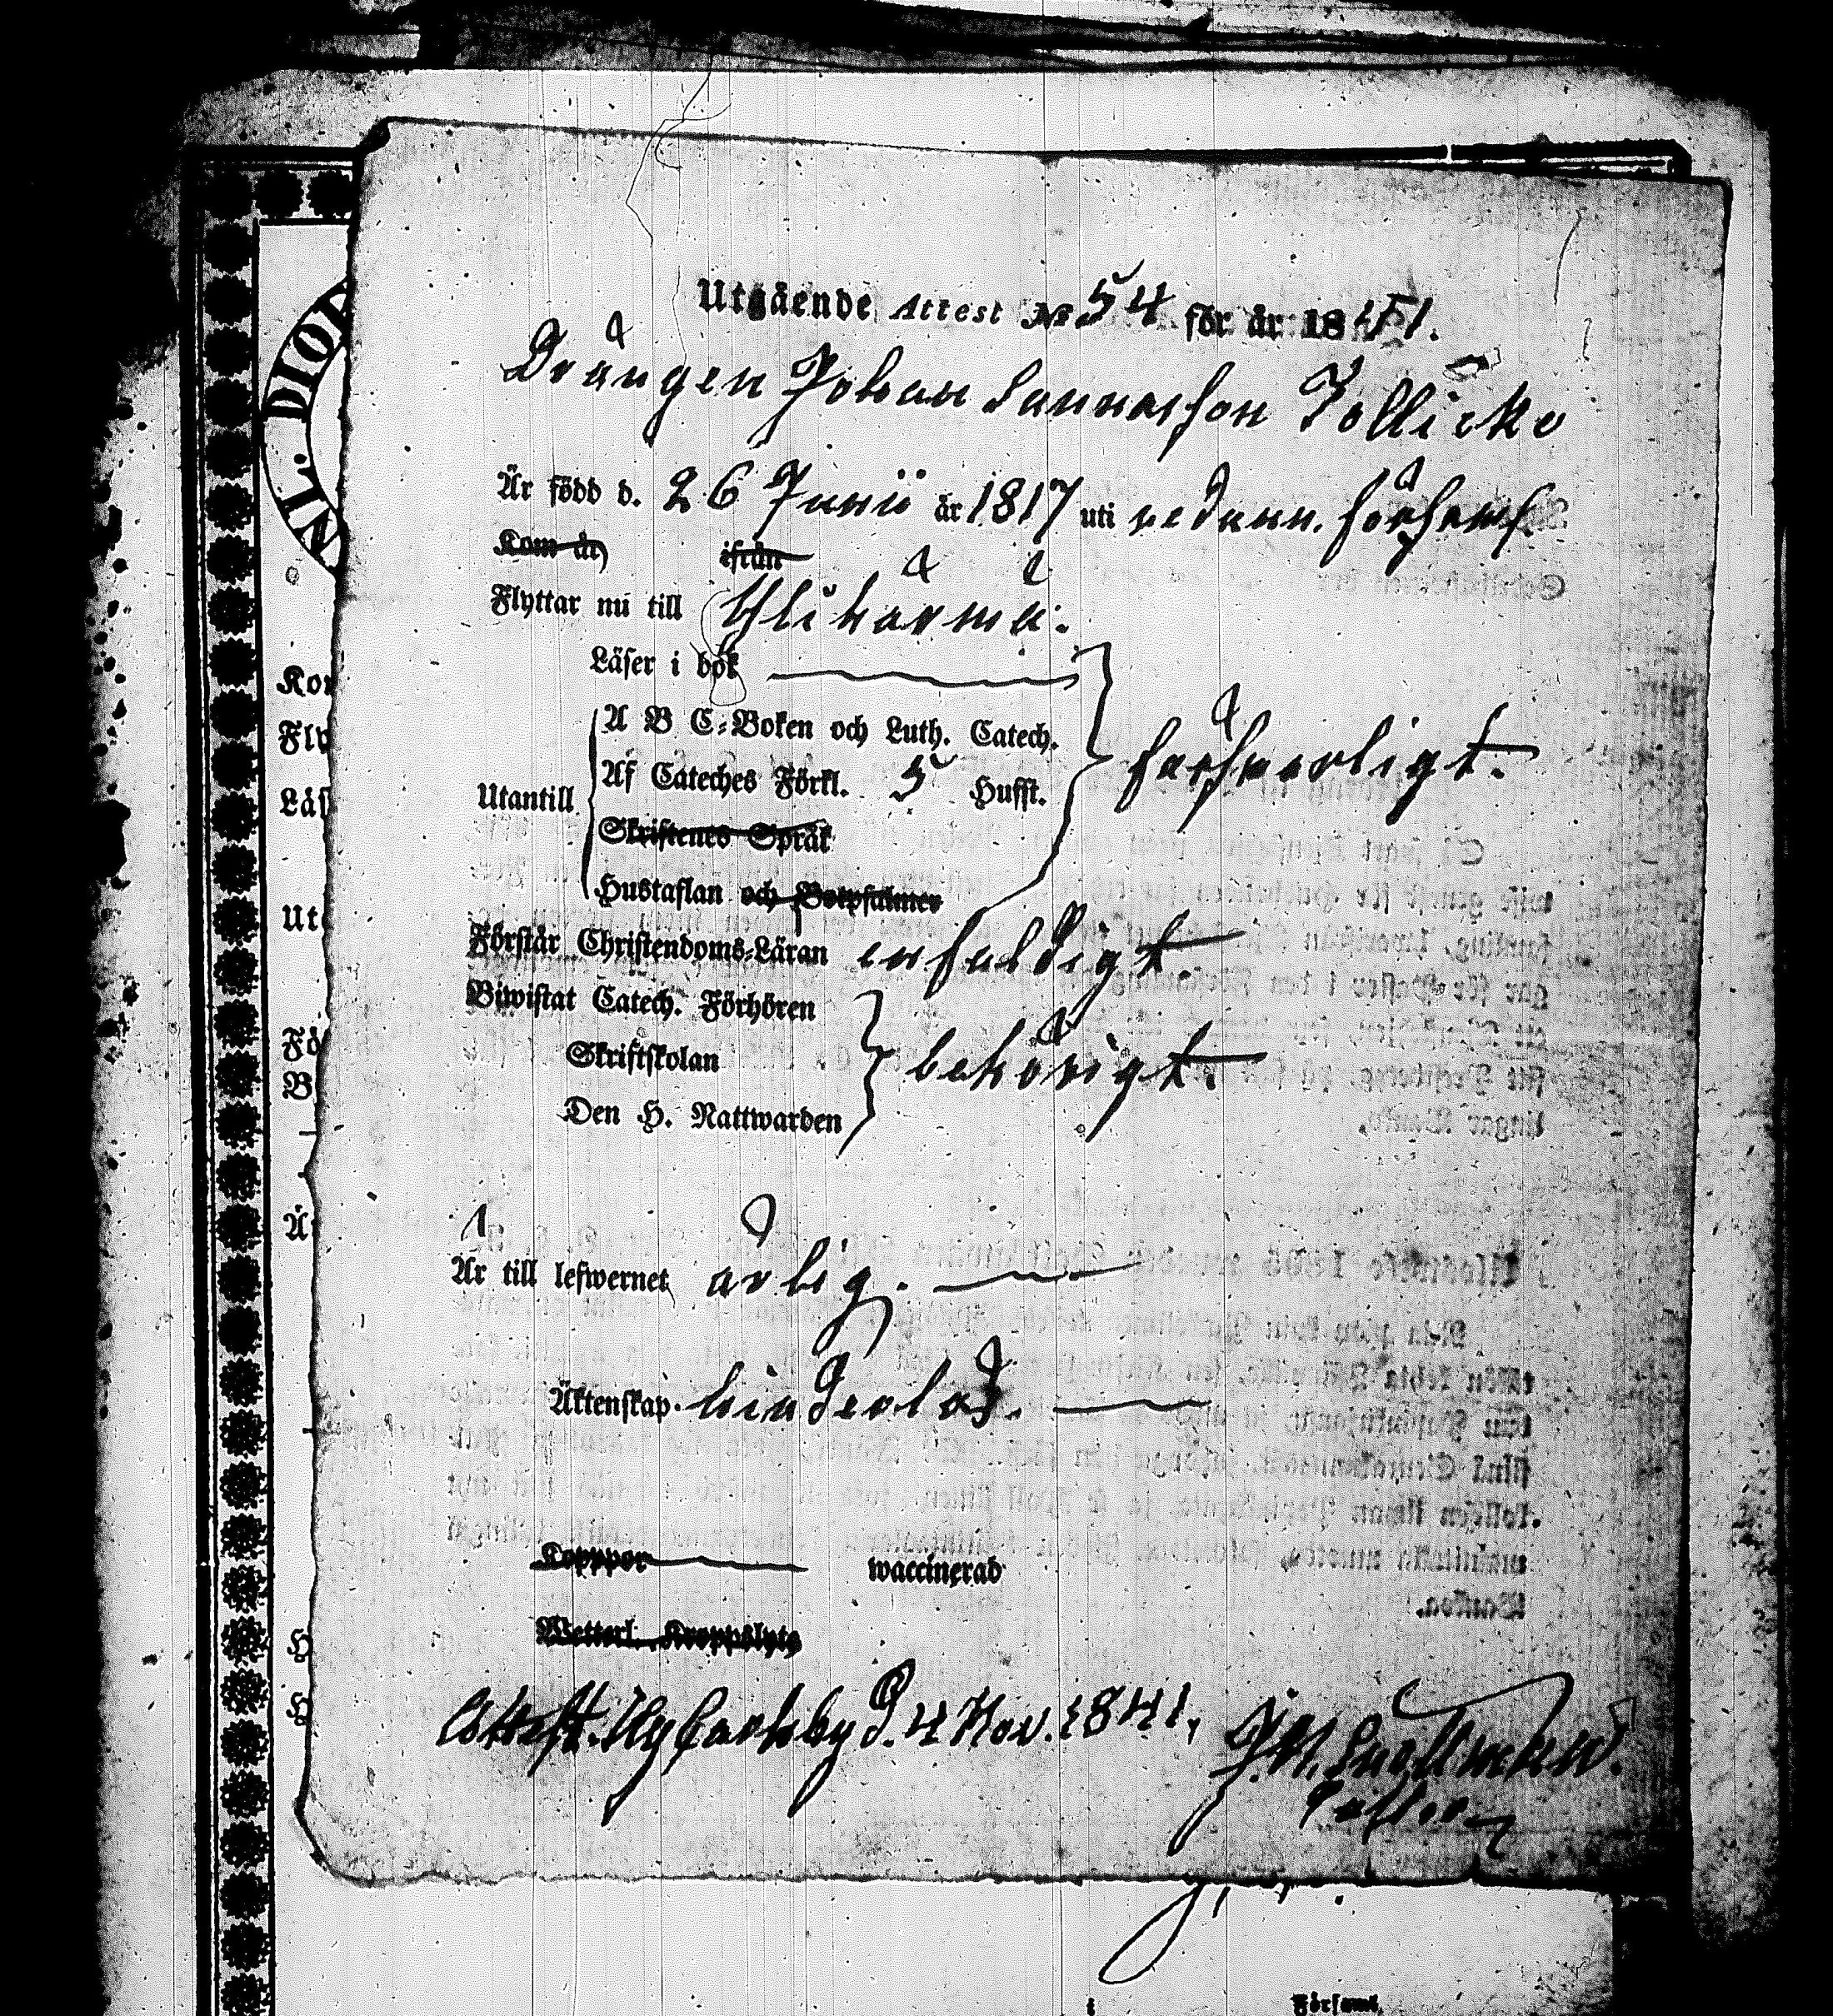 Utgående Attest № 54 för år 1841.
Drängen Johan Gunnarsson Jollicko
Är född d. 26 Junii år 1817 uti nedann. förſaml.
Kom år ifrån
Flyttar nu till Ylihärmä.
Läſer i bok
A B C-Boken och Luth. Catech.
Af Cateches Förkl. 5 Hufſt. förſvarligt.
Utantill
Skriftenes Språk
Huſtaflan och Botpſalmer
Förſtår Chriſtendoms-Läran enfaldigt.
Biwiſtat Catech. Förhören
Skriftſkolan behörigt.
Den H. Nattwarden
Är till lefwernet ärlig.
Äktenſkap hinderlös.
Kopppor waccinerad
Wetterl. Kroppslyte
Atteſt. Ny Carleby d. 4 Nov. 1841,
J. M. Snellman.
Paſtor
NL. DIOE
Kor
Fly
Läſ
Ut
Fö
B
Ä
H
H
i Förſaml.